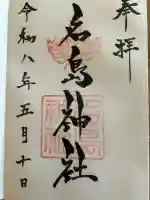 奉拝
名島神社
令和八年五月十日